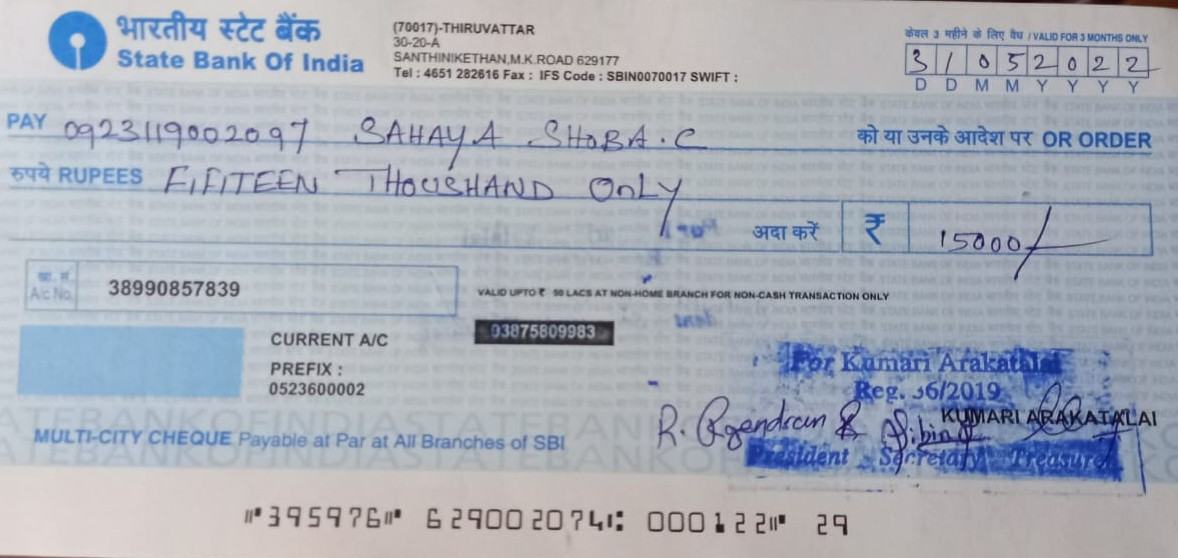 भारतीय स्टेट बैंक
State Bank Of India
(70017)-THIRUVATTAR
30-20-A
SANTHINIKETHAN,M.K.ROAD 629177
Tel : 4651 282616 Fax : IFS Code : SBIN0070017 SWIFT :
केवल 3 महीने के लिए वैध / VALID FOR 3 MONTHS ONLY
31052022
D D M M Y Y Y Y
PAY 0923119002097 SAHAYA SHOBA.C को या उनके आदेश पर OR ORDER
रुपये RUPEES FIFITEEN THOUSHAND ONLY
अदा करें ₹ 15000/-
खा. सं.
A/c No. 38990857839
VALID UPTO ₹ 50 LACS AT NON-HOME BRANCH FOR NON-CASH TRANSACTION ONLY
93875809983
CURRENT A/C
PREFIX :
0523600002
For Kumari Arakatalai
Reg. 36/2019
KUMARI ARAKATALAI
R.
President Secretary Treasurer
MULTI-CITY CHEQUE Payable at Par at All Branches of SBI
⑈395976⑈ 629002074⑆ 000122⑈ 29